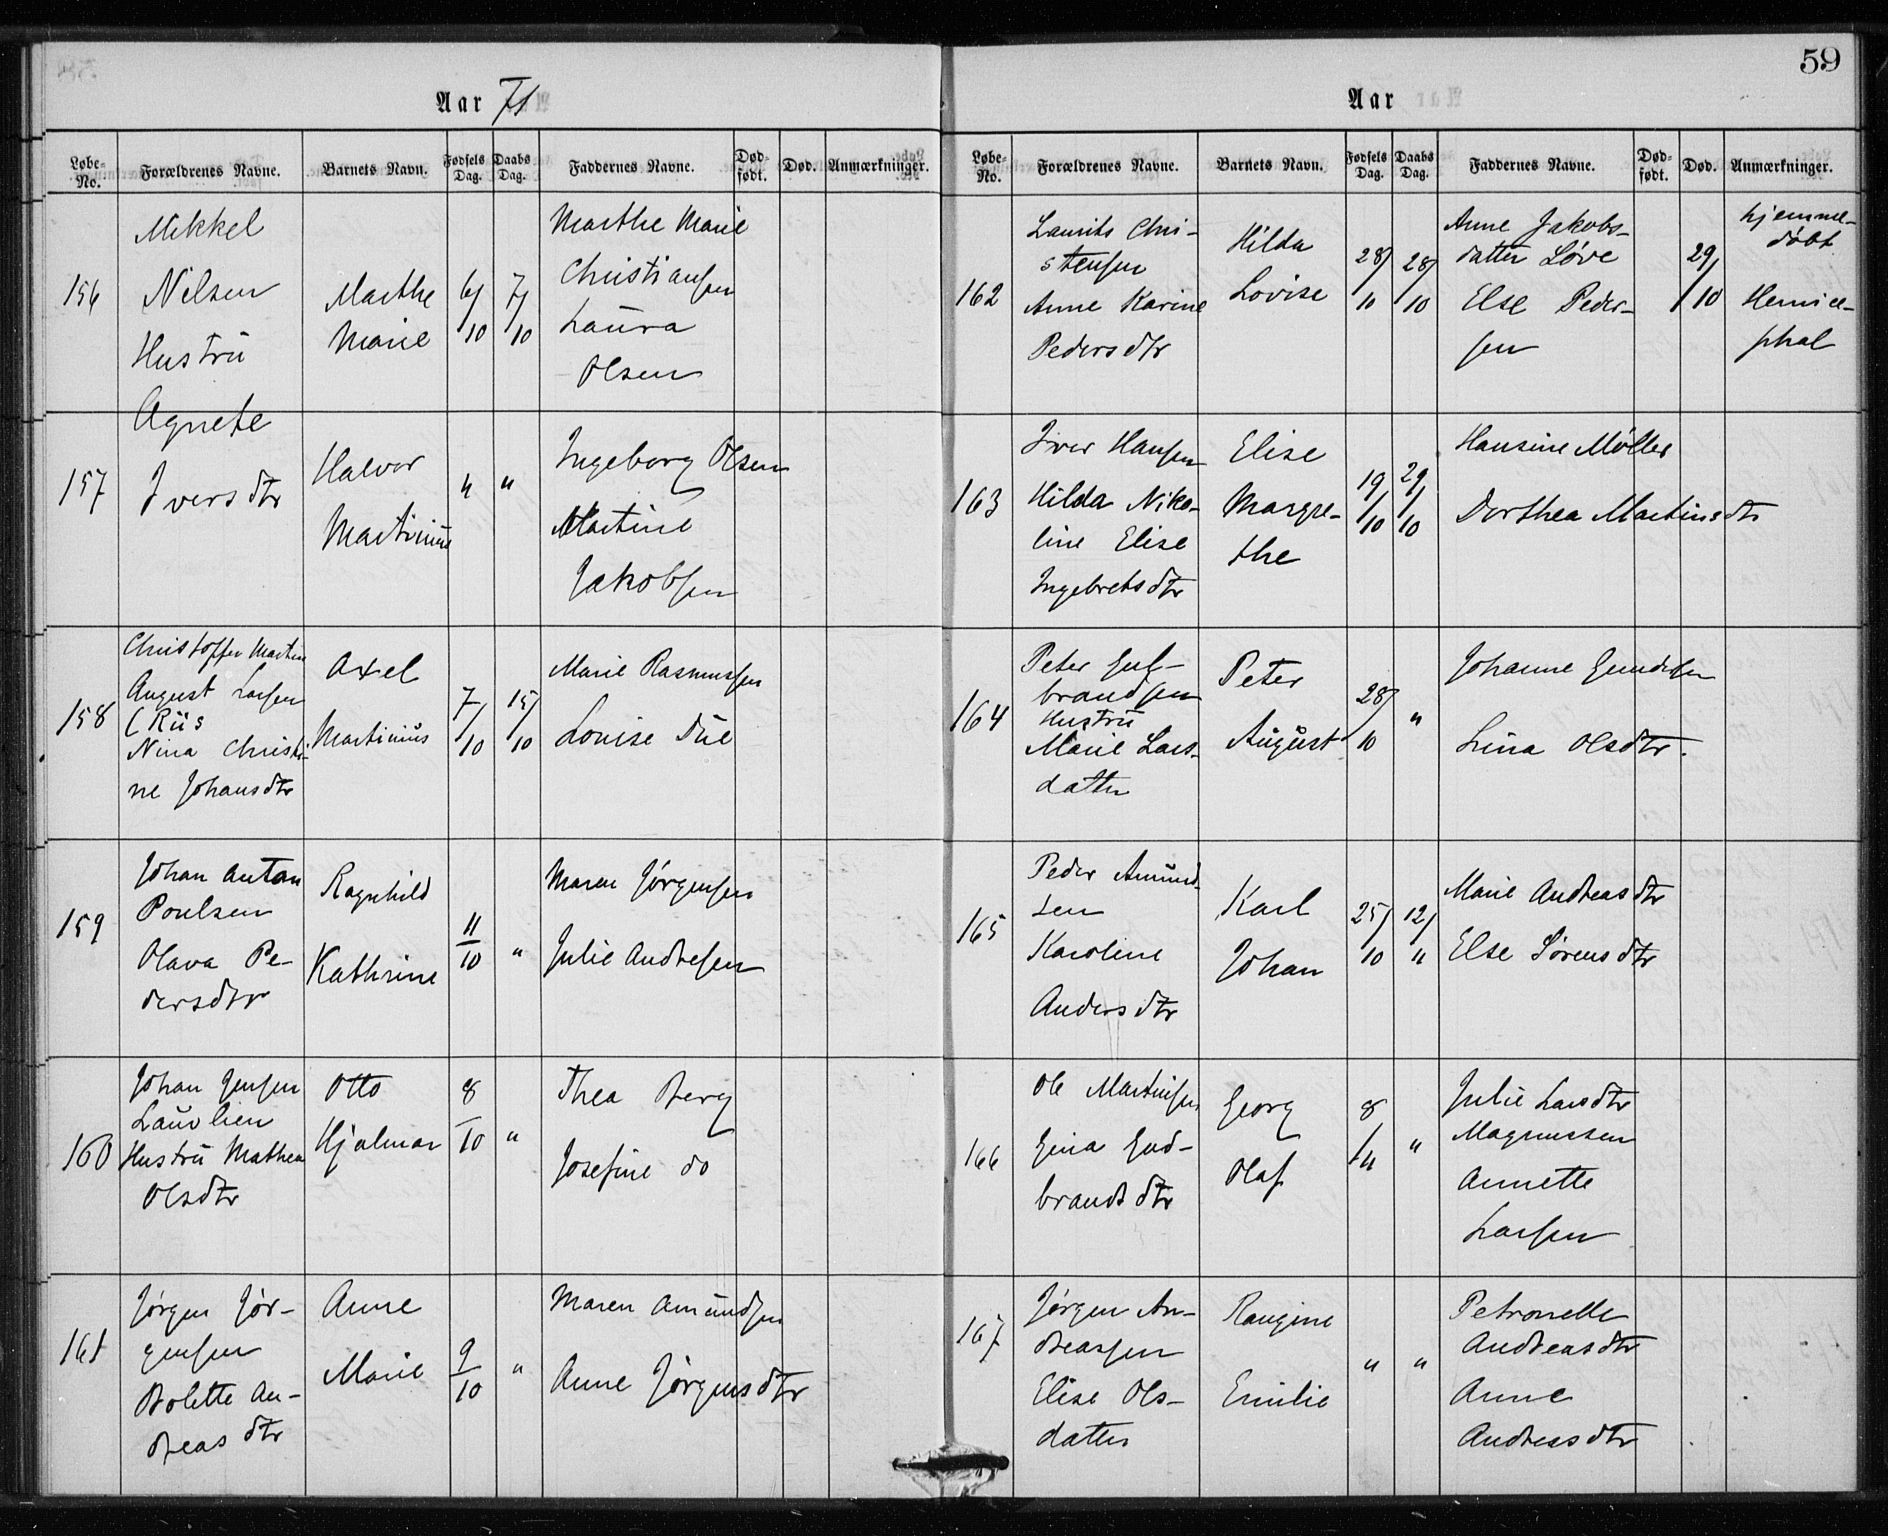 59
Aar 71
Løbe-No. Forældrenes Navne. Barnets Navn. Fødsels Dag. Daabs Dag. Faddernes Navne. Død-født. Død. Anmærkninger.
156
Mikkel
Nilsen
Hustru
Agnete
Iversdtr
Marthe
Marie
6/10
7/10
Marthe Marie
Christiansen
Laura
Olsen
157
Halvor
Martinius
"
"
Ingeborg Olsen
Martine
Jakobsen
158
Christoffer Martin
August Larsen
(Riis
Nina Christi-
ne Johansdtr
Axel
Martinius
7/10
15/10
Marie Rasmussen
Louise Due
159
Johan Anton
Poulsen
Olava Pe-
dersdtr
Ragnhild
Kathrine
11/10
"
Maren Jørgensen
Julie Andresen
160
Johan Jensen
Laurlien
Hustru Mathea
Olsdtr
Otto
Hjalmar
8/10
"
Thea Berg
Josefine do
161
Jørgen Jør-
gensen
Bolette An-
dreasdtr
Anne
Marie
9/10
"
Maren Amundsen
Anne Jørgensdtr
Aar
Løbe-No. Forældrenes Navne. Barnets Navn. Fødsels Dag. Daabs Dag. Faddernes Navne. Død-født. Død. Anmærkninger.
162
Laurits Chri-
stensen
Anne Karine
Pedersdtr
Hilda
Lovise
28/10
28/10
Anne Jakobs-
datter Løve
Else Peder-
sen
29/10
hjemme-
døbt
Hemice-
phal
163
Iver Hansen
Hilda Niko-
line Elise
Ingebretsdtr
Elise
Margre-
the
19/10
29/10
Hansine Møller
Dorthea Martinsdtr
164
Peter Gul-
brandsen
Hustru
Marie Lars-
datter
Peter
August
28/10
"
Johanne Gundersen
Lina Olsdtr.
165
Peder Amund-
sen
Karoline
Andersdtr
Karl
Johan
25/10
12/11
Marie Andreasdtr
Else Sørensdtr
166
Ole Martinsen
Gina Gud-
brandsdtr
Georg
Olaf
8/11
"
Julie Larsdtr
Magnussen
Annette
Larsen
167
Jørgen An-
dreassen
Elise Ols-
datter
Rangine
Emilie
"
"
Petronelle
Andreasdtr
Anne
Andreasdtr